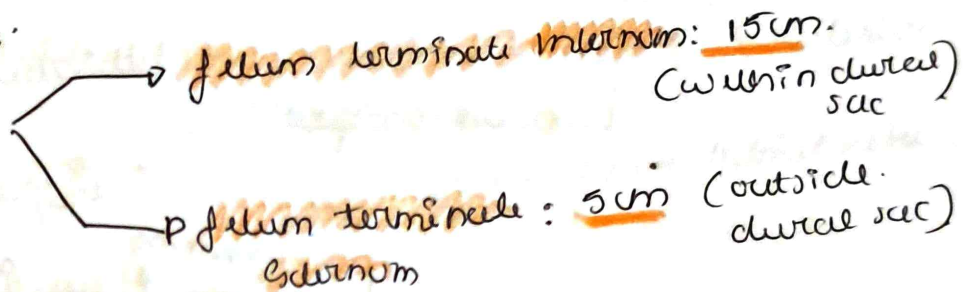 filum terminale internum: 15cm.
(within dural
sac)
filum terminale : 5cm (outside.
dural sac)
Externum